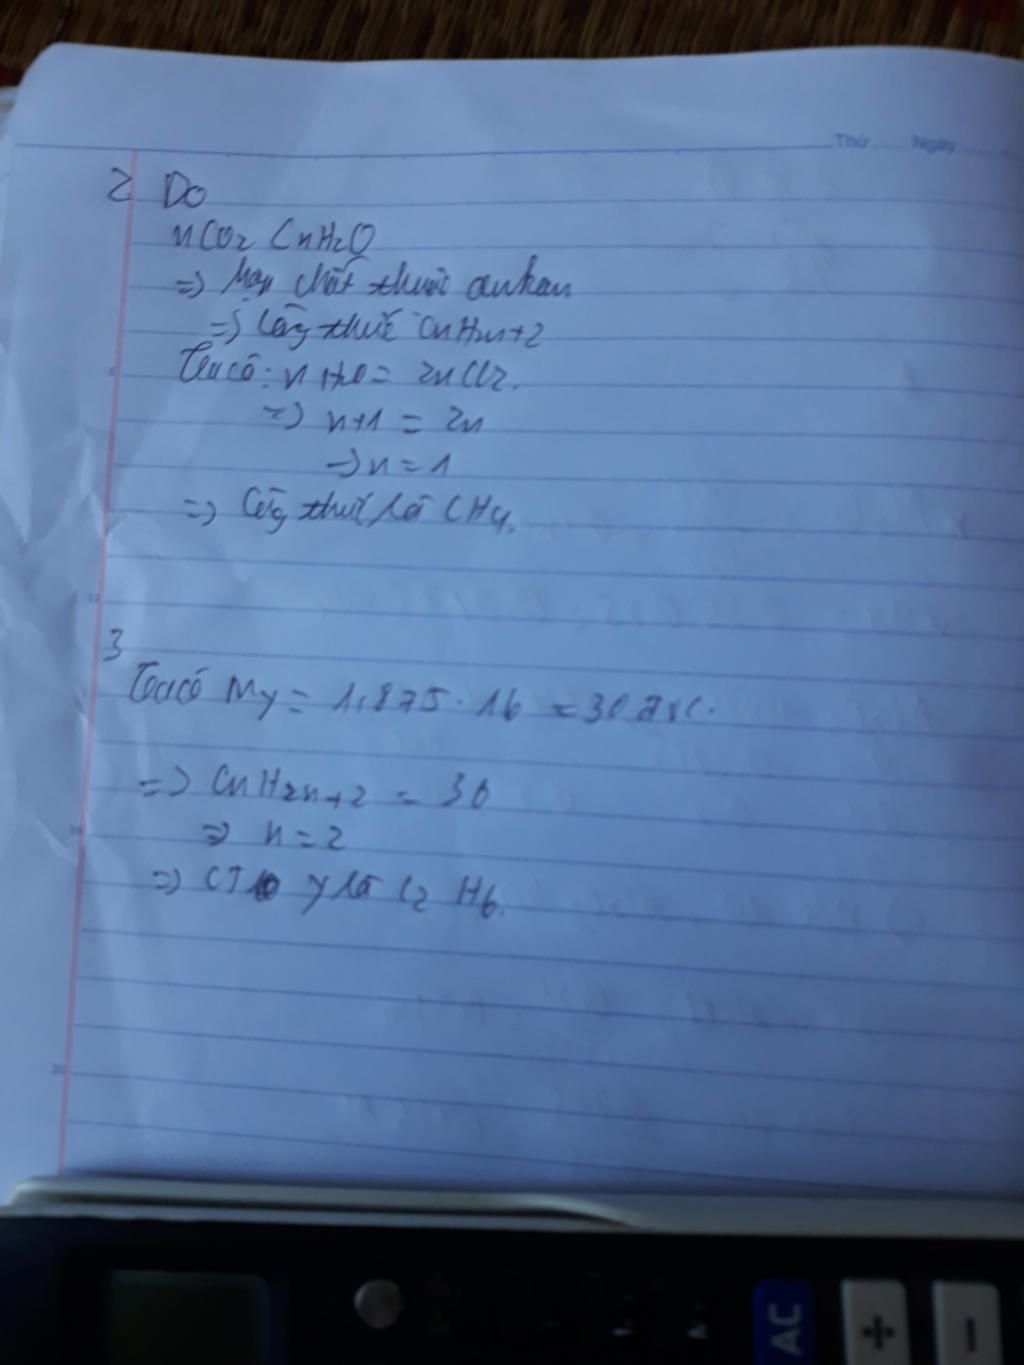 Thứ Ngày
2 Do
nCO2 < nH2O
=> hợp chất thuộc ankan
=> Công thức CnH2n+2
Ta có: nH2O = 2nCO2.
=> n+1 = 2n
=> n = 1
=> Công thức là CH4.
3
Ta có My = 1,875 . 16 = 30 đvC.
=> CnH2n+2 = 30
=> n = 2
=> CT y là C2H6.
AC ÷ -